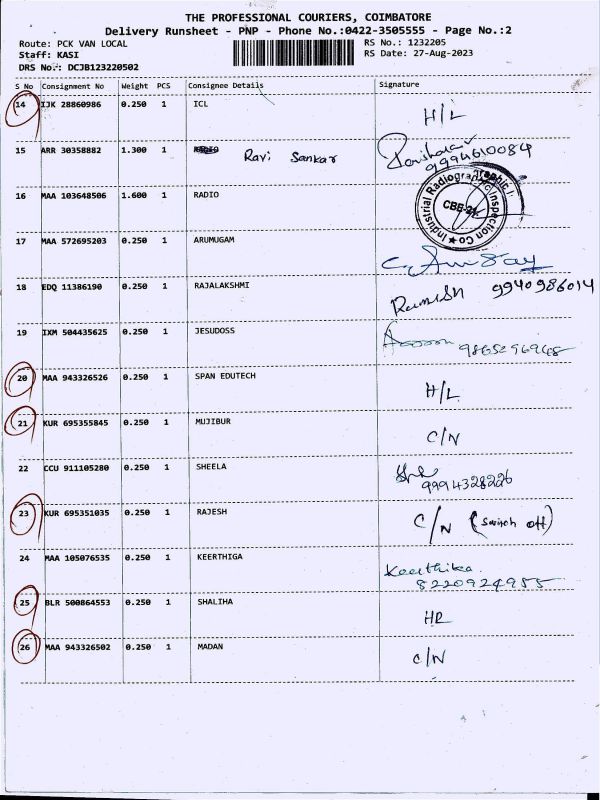 THE PROFESSIONAL COURIERS, COIMBATORE
Delivery Runsheet - PNP - Phone No.:0422-3505555 - Page No.:2
Route: PCK VAN LOCAL RS No.: 1232205
Staff: KASI RS Date: 27-Aug-2023
DRS No.: DCJB123220502
S No Consignment No Weight PCS Consignee Details Signature
14 IJK 28860986 0.250 1 ICL H/L
15 ARR 30358882 1.300 1 Ravi Sankar 9994610084
16 MAA 103648506 1.600 1 RADIO Industrial Radiographic Inspection Co CBE-21
17 MAA 572695203 0.250 1 ARUMUGAM
18 EDQ 11386190 0.250 1 RAJALAKSHMI Ramesh 9940986014
19 IXM 504435625 0.250 1 JESUDOSS
20 MAA 943326526 0.250 1 SPAN EDUTECH H/L
21 KUR 695355845 0.250 1 MUJIBUR C/N
22 CCU 911105280 0.250 1 SHEELA 9994328226
23 KUR 695351035 0.250 1 RAJESH C/N (Switch off)
24 MAA 105076535 0.250 1 KEERTHIGA Keerthika 8220924955
25 BLR 500864553 0.250 1 SHALIHA HR
26 MAA 943326502 0.250 1 MADAN C/N